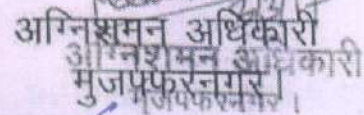 अग्निशमन अधिकारी
अग्निशमन अधिकारी
मुजफ्फरनगर।
मुजफ्फरनगर।